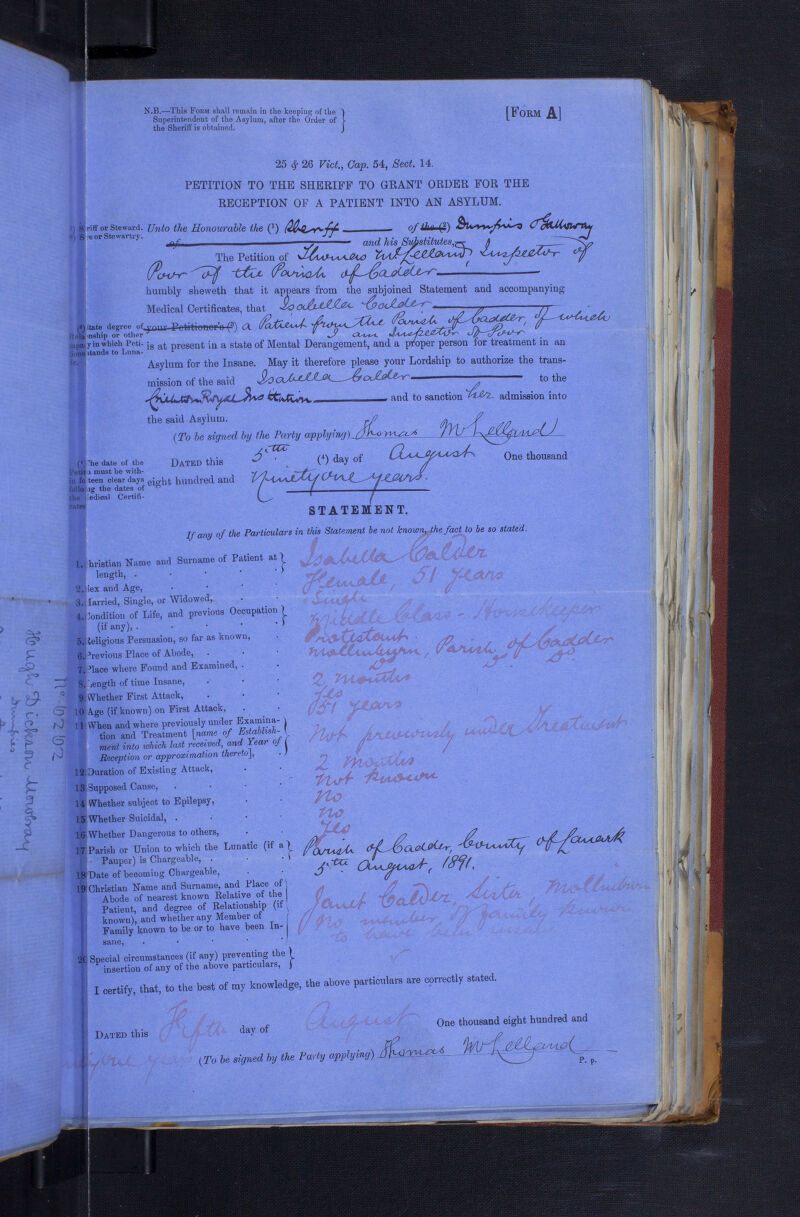 N.B.—This Form shall remain in the keeping of the
Superintendent of the Asylum, after the Order of
the Sheriff is obtained.
[Form A]
25 & 26 Vict., Cap. 54, Sect. 14.
PETITION TO THE SHERIFF TO GRANT ORDER FOR THE
RECEPTION OF A PATIENT INTO AN ASYLUM.
riff or Steward.
or Stewartry.
Unto the Honourable the (1) Sheriff of the (2) Dumfries & Galloway
of and his Substitutes,
The Petition of Thomas McLelland, Inspector of
Poor of the Parish of Cadder
humbly sheweth that it appears from the subjoined Statement and accompanying
Medical Certificates, that Isabella Calder
(3) State degree of
onship or other
y in which Peti-
stands to Luna-
your Petitioner's (3) a Patient from the Parish of Cadder, of which
I am Inspector of Poor
is at present in a state of Mental Derangement, and a proper person for treatment in an
Asylum for the Insane. May it therefore please your Lordship to authorize the trans-
mission of the said Isabella Calder to the
Crichton Royal Institution and to sanction her admission into
the said Asylum.
(To be signed by the Party applying) Thomas McLelland
The date of the
must be with-
teen clear days
ng the dates of
edical Certifi-
DATED this 5th (4) day of August One thousand
eight hundred and Ninety one years.
STATEMENT.
If any of the Particulars in this Statement be not known, the fact to be so stated.
1. Christian Name and Surname of Patient at length, . Isabella Calder
2. Sex and Age, Female, 51 Years
3. Married, Single, or Widowed, Single
4. Condition of Life, and previous Occupation (if any), . Middle Class - Housekeeper
5. Religious Persuasion, so far as known, Protestant
6. Previous Place of Abode, . Mollinburn, Parish of Cadder
7. Place where Found and Examined, . Do Do Do
8. Length of time Insane, 2 months
9 Whether First Attack, Yes
10 Age (if known) on First Attack, 51 years
11 When and where previously under Examina-
tion and Treatment [name of Establish-
ment into which last received, and Year of
Reception or approximation thereto], Not previously under treatment
12 Duration of Existing Attack, 2 Months
13 Supposed Cause, Not known
14 Whether subject to Epilepsy, No
15 Whether Suicidal, . No
16 Whether Dangerous to others, Yes
17 Parish or Union to which the Lunatic (if a
Pauper) is Chargeable, . Parish of Cadder, County of Lanark
18 Date of becoming Chargeable, 5th August, 1891.
19 Christian Name and Surname, and Place of
Abode of nearest known Relative of the
Patient, and degree of Relationship (if
known), and whether any Member of
Family known to be or to have been In-
sane, Janet Calder, Sister, Mollinburn
No member of family known
to have been insane
20 Special circumstances (if any) preventing the
insertion of any of the above particulars,
I certify, that, to the best of my knowledge, the above particulars are correctly stated.
DATED this Fifth day of August One thousand eight hundred and
ninety one years
(To be signed by the Party applying) Thomas McLelland
P. p.
No 62/92
Hugh Dickson
Dumfries